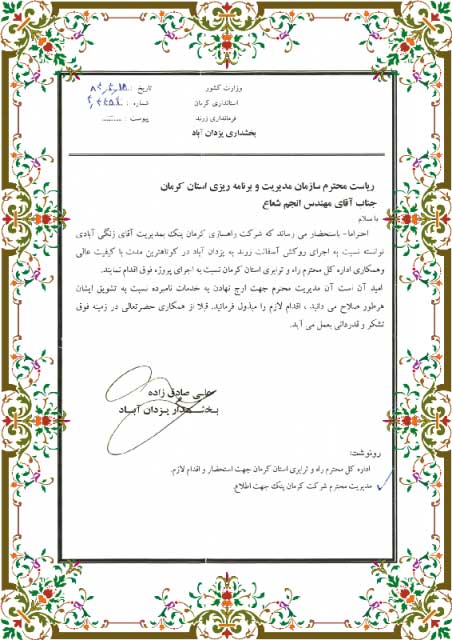 وزارت کشور
استانداری کرمان
فرمانداری زرند
بخشداری یزدان آباد
تاریخ :
شماره :
پیوست :
ریاست محترم سازمان مدیریت و برنامه ریزی استان کرمان
جناب آقای مهندس انجم شعاع
با سلام
احتراما- باستحضار می رساند که شرکت راهسازی کرمان پنک بمدیریت آقای زنگی آبادی
توانسته نسبت به اجرای روکش آسفالت زرند به یزدان آباد در کوتاهترین مدت با کیفیت عالی
وهمکاری اداره کل محترم راه و ترابری استان کرمان نسبت به اجرای پروژه فوق اقدام نمایند.
امید آن است آن مدیریت محترم جهت ارج نهادن به خدمات نامبرده نسبت به تشویق ایشان
هرطور صلاح می دانید ، اقدام لازم را مبذول فرمائید. قبلا از همکاری حضرتعالی در زمینه فوق
تشکر و قدردانی بعمل می آید.
علی صادق زاده
بخشدار یزدان آباد
رونوشت:
اداره کل محترم راه و ترابری استان کرمان جهت استحضار و اقدام لازم.
مدیریت محترم شرکت کرمان پنک جهت اطلاع.